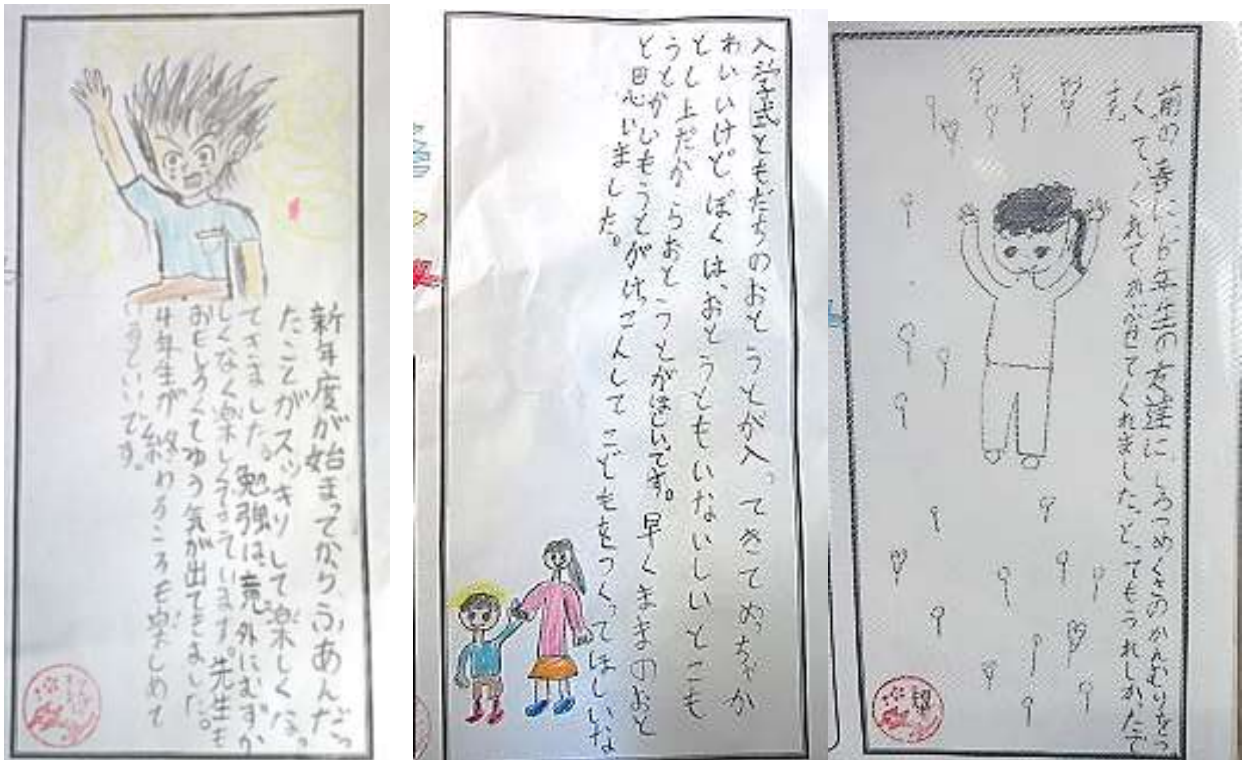 新年度が始まってから、ふあんだっ
たことがスッキリして楽しくなっ
てきました。勉強は、意外にむずか
しくなく楽しくなっています。先生も
おもしろくてゆう気が出てきました。
4年生が終わるころも楽しめて
いるといいです。
入学式ともだちのおとうとが入ってきてめっちゃか
わいいけどぼくは、おとうともいないしいとこも
とし上だからおとうとがほしいです。早くままのおと
うとかいもうとがけっこんしてこどもをつくってほしいな
と思いました。
前の春に6年生の友達に、しろつめくさのかんむりをつ
くてくれてかぶせてくれました。とってもうれしかたで
す。